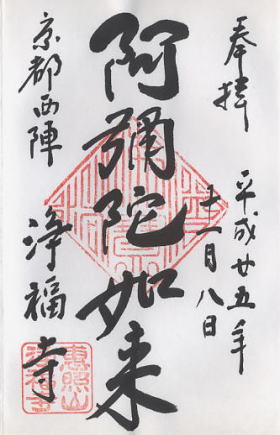 奉拝
平成廿五年
十一月八日
阿彌陀如来
京都西陣
浄福寺
恵照山
浄福寺